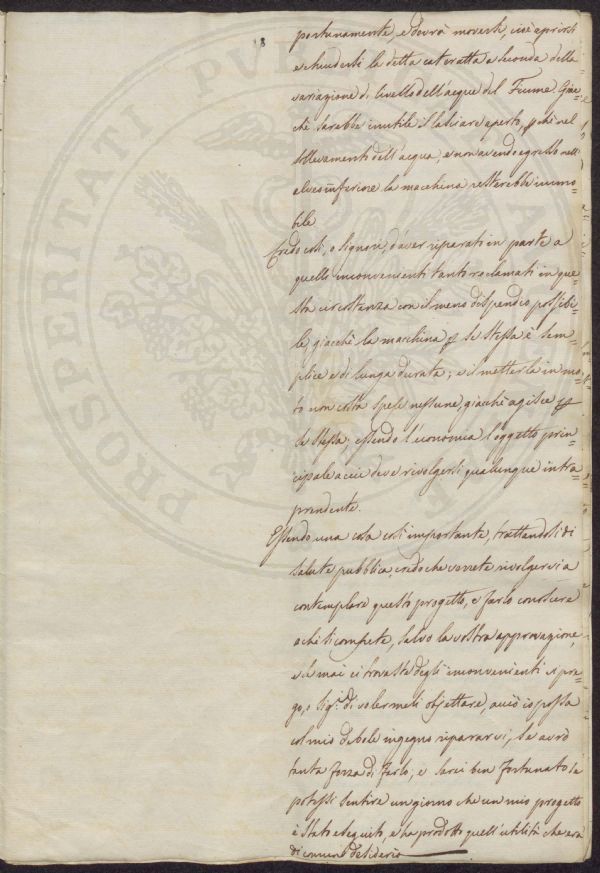 8
portunamente, e dovrà moversi, cioè aprirsi
e chiudersi la detta cateratta a seconda delle
variazione di livello dell'acque del Fiume. Giac=
chè sarebbe inutile il lasciare aperto, poichè nel
sollevamento dell'acqua, e non avendo egresso nell'
alveo inferiore la macchina resterebbe immo=
bile
Credo così, o Signori, d'aver riparati in parte a
quelli inconvenienti tanto reclamati in que=
sta circostanza con il meno dispendio possibi=
le, giacchè la macchina p se stessa è sem=
plice e di lunga durata; e il metterla in mo=
to non costa spese nessune, giacchè agisce p
se stessa; essendo l'economia l'oggetto prin=
cipale a cui deve rivolgersi qualunque intra=
prendente.
Essendo una cosa così importante, trattandosi di
salute pubblica, credo che vorrete rivolgervi a
contemplare questo progetto, e farlo conoscere
a chi si compete, salvo la vostra approvazione,
e se mai ci trovaste degli inconvenienti vi pre=
go, o Sigri. di volermeli obiettare, acciò io possa
col mio debole ingegno ripararvi, se avrò
tanta forza di farlo; e sarei ben fortunato se
potessi sentire un giorno che un mio progetto
è stato eseguito, e ha prodotto quell'utilità che era
di comune desiderio
PROSPERITATI PUB